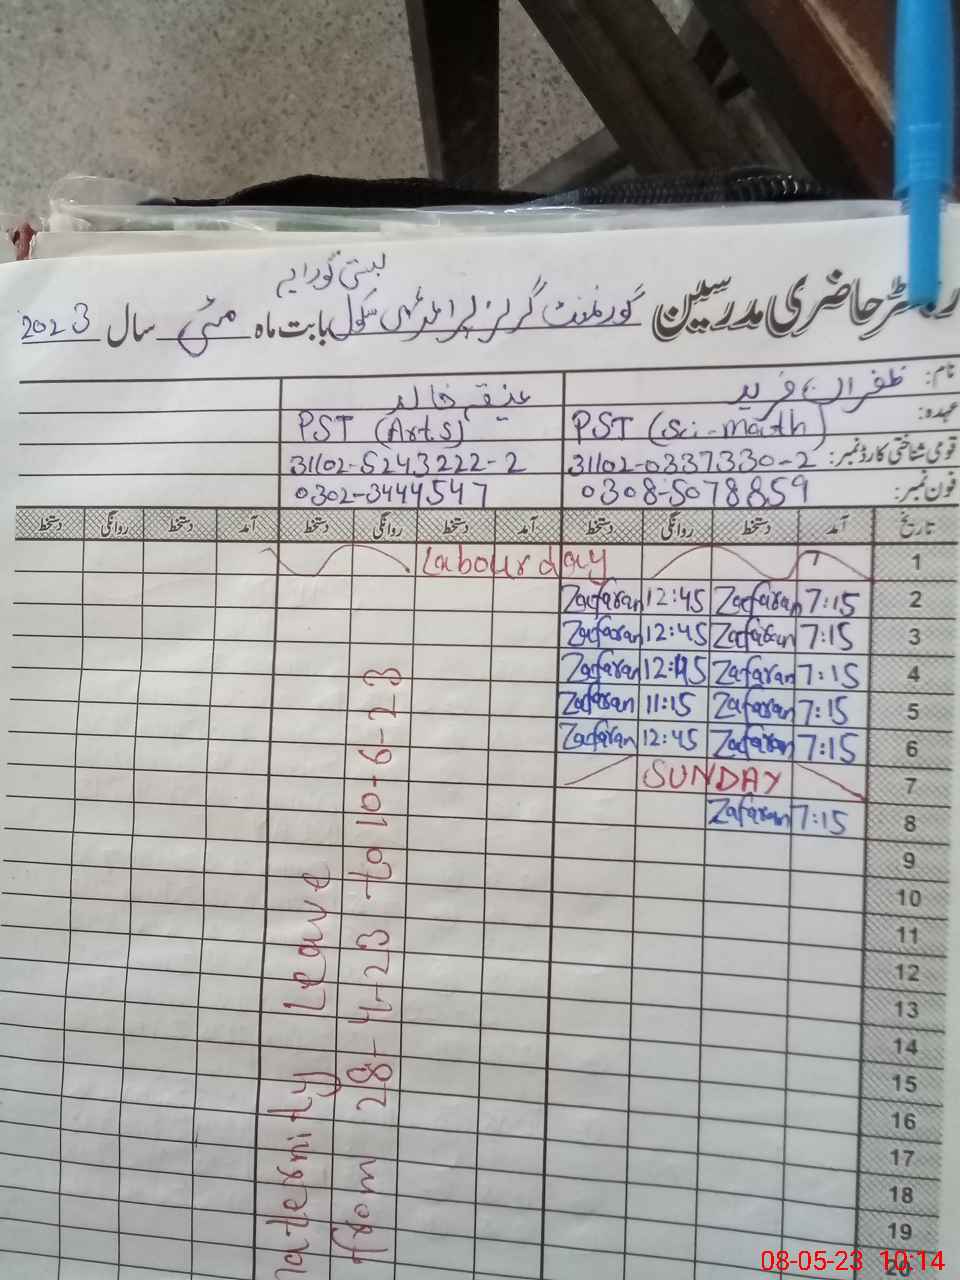 بستی گورایہ
رجسٹر حاضری مدرسین گورنمنٹ گرلز پرائمری سکول بابت ماہ مئی سال 2023
نام: ظفران فرید عنیقہ خالد
عہدہ: PST (Sci-math) PST (Arts)
قومی شناختی کارڈ نمبر: 31102-0337330-2 31102-5243222-2
فون نمبر: 0308-5078859 0302-3444547
تاریخ آمد دستخط روانگی دستخط آمد دستخط روانگی دستخط آمد دستخط روانگی دستخط
1 Labour day
2 7:15 Zafaran 12:45 Zafaran
3 7:15 Zafaran 12:45 Zafaran
4 7:15 Zafaran 12:45 Zafaran
5 7:15 Zafaran 11:15 Zafaran
6 7:15 Zafaran 12:45 Zafaran
7 SUNDAY
8 7:15 Zafaran
9
10
11
12
13
14
15
16
17
18
19
20
Maternity Leave
from 28-4-23 to 10-6-23
08-05-23 10:14